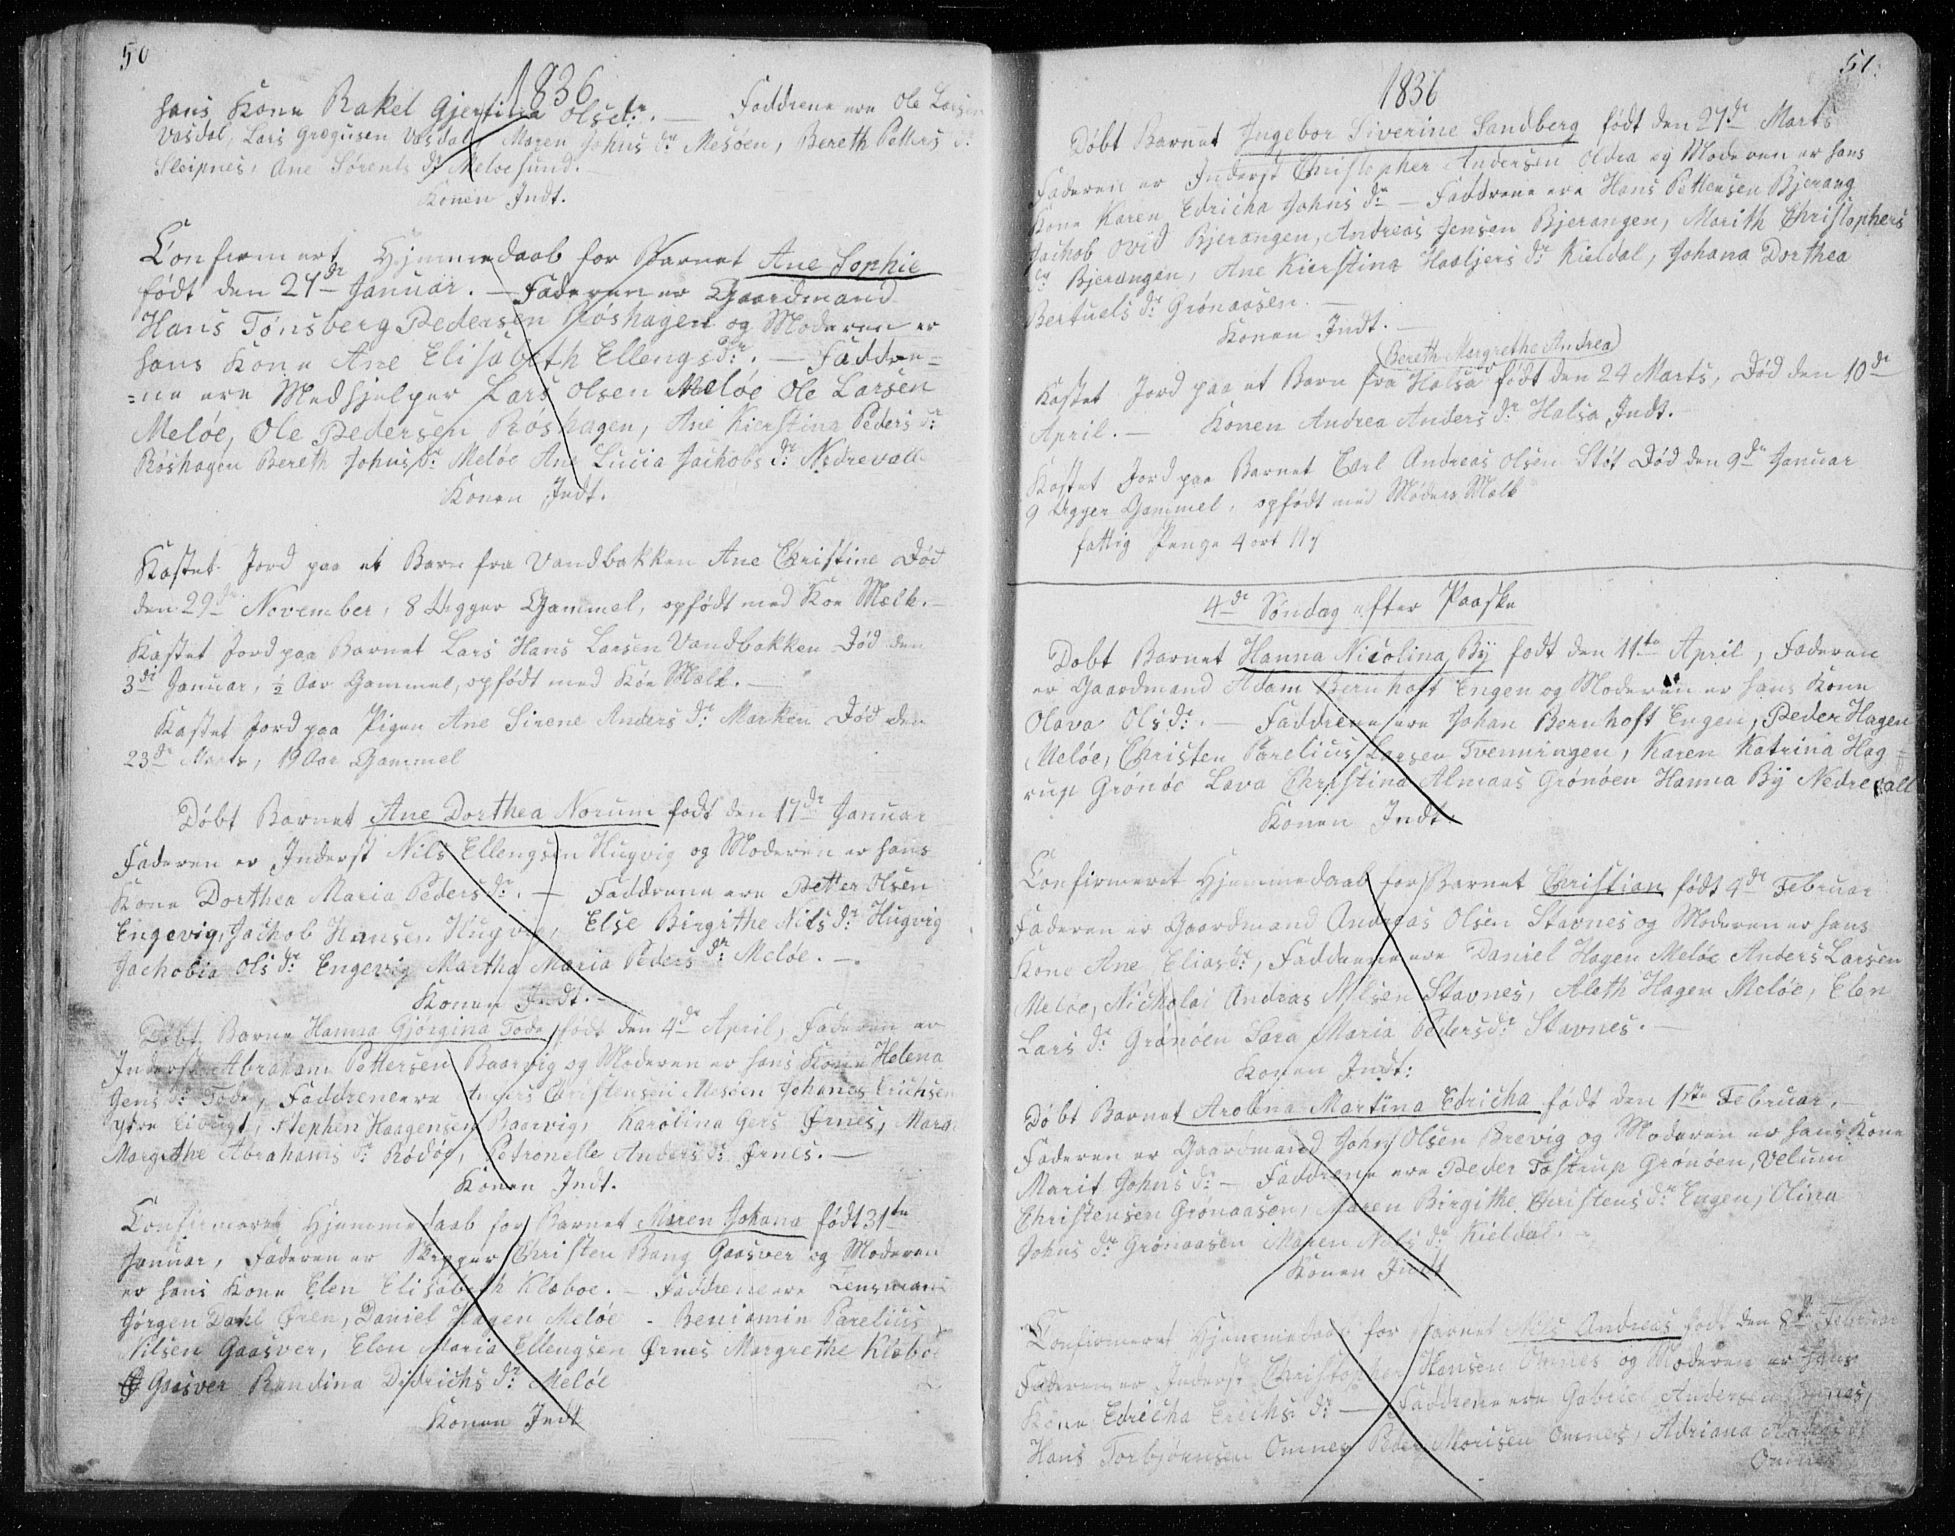 50
1836
hans Kone Rakel Gjertina Olsdr. — Faddrene ere Ole Larsen
Vasdal, Lars Gregusen Vasdal, Maren Johns dr Mesøen, Bereth Petters dr
Sleipnes, Ane Sørents dr Meløesund.
Konen Indt.
Confirmert Hjemmedaab for Barnet Ane Sophie
født den 27de Januar. — Faderen er Gaardmand
Hans Tønsberg Pedersen Røshagen og Moderen er
hans Kone Ane Elisabeth Ellengsdr. — Faddre=
=ne ere Medhjelper Lars Olsen Meløe Ole Larsen
Meløe, Ole Pedersen Røshagen, Ane Kierstina Peders dr
Røshagen Bereth Johns dr Meløe Ane Lucia Jachobs dr Nedrevall
Konen Indt.
Kastet Jord paa et Barn fra Vandbakken Ane Christine Død
den 29de November, 8 Ugger Gammel, opfødt med Koe Mælk. —
Kastet Jord paa Barnet Lars Hans Larsen Vandbakken Død den
3de Januar, ½ Aar Gammel, opfødt med Koe Mælk. —
Kastet Jord paa Pigen Ane Sirene Anders dr Marken Død den
23de Marts, 19 Aar Gammel
Døbt Barnet Ane Dorthea Norum født den 17de Januar
Faderen er Inderst Nils Ellengsen Hugvig og Moderen er hans
Kone Dorthea Maria Peders dr. — Faddrene ere Petter Olsen
Engevig, Jachob Hansen Hugvig, Else Birgithe Nils dr Hugvig
Jachobia Ols dr Engevig Martha Maria Peders dr Meløe. —
Konen Indt. —
Døbt Barne Hanna Gjørgina Tode født den 4de April, Faderen er
Inderst Abraham Pettersen Baarvig og Moderen er hans Kone Helena
Jens dr Tode, Faddrene ere Anders Christensen Mesøen Johanes Erichsen
ytre Esvigt, Stephen Haagensen Baarvig, Karolina Gers Ørnes, Maren
Margrethe Abrahams dr Rødøe, Petronelle Anders dr Ørnes. —
Konen Indt.
Confirmeret Hjemmedaab for Barnet Maren Johana født 31te
Januar, Faderen er Skipper Christen Bang Gaasver og Moderen
er hans Kone Elen Elisabeth Kleboe. — Faddrene ere Lensmand
Jørgen Dahl Øren, Daniel Hagen Meløe - Beniamin Parelius
Nilsen Gaasver, Elen Maria Ellengsen Ørnes Margrethe Kleboe
Gaasver Randina Didrichs dr Meløe
Konen Indt
51.
1836
Døbt Barnet Ingebor Siverine Sandberg født den 27de Marts
Faderen er Inderst Christopher Andersen Oldra og Moderen er hans
Kone Karen Edricha Johns dr — Faddrene ere Hans Pettersen Bjerang
Jachob Ovid Bjerangen, Andreas Jensen Bjerangen, Marith Christophers
dr Bjerangen, Ane Kierstina Haaljers dr Kieldal, Johana Dorthea
Bertuels dr Grønaasen. —
Konen Indt. —
Bereth Margrethe Andrea
Kastet Jord paa et Barn fra Halsa født den 24 Marts, Død den 10de
April. — Konen Andrea Anders dr Halsa Indt.
Kastet Jord paa Barnet Carl Andreas Olsen Støt Død den 9de Januar
9 Ugger Gammel, opfødt med Moders Mælk
fattig Penge 4 ort 11
4de Søndag efter Paaske
Døbt Barnet Hanna Nicolina By født den 11te April, Faderen
er Gaardmand Adam Bernhoft Engen og Moderen er hans Kone
Olava Ols dr. — Faddrene ere Johan Bernhoft Engen, Peder Hagen
Meløe, Christen Parelius Larsen Tvenningen, Karen Katrina Hag
rup Grønøe Lava Christina Almaas Grønøen Hanna By Nedrevall
Konen Indt.
Confirmeret Hjemmedaab for Barnet Christian født 4de Februar
Faderen er Gaardmand Andreas Olsen Stavnes og Moderen er hans
Kone Ane Elias dr, Faddrene ere Daniel Hagen Meløe Anders Larsen
Meløe, Nicholai Andras Nilsen Stavnes, Aleth Hagen Meløe, Elen
Lars dr Grønøen Sara Maria Peders dr Stavnes. —
Konen Indt:
Døbt Barnet Arolina Martina Edricha født den 1ste Februar, —
Faderen er Gaardmand John Olsen Brevig og Moderen er hans Kone
Marit Johns dr — Faddrene ere Peder Tostrup Grønøen, Velum
Christensen Grønaasen, Maren Birgithe Christens dr Engen, Olina
Johns dr Grønaasen Maren Nils dr Kieldal. —
Konen Indt
Confirmeret Hjemmedaab for Barnet Nils Andreas født den 8de Februar
Faderen er Inderst Christopher Hansen Omnes og Moderen er hans
Kone Edricha Erichs dr — Faddrene ere Gabriel Andersen
Hans Torbjørnsen Omnes Peder Morisen Omnes, Adriana Anders dr
Omnes